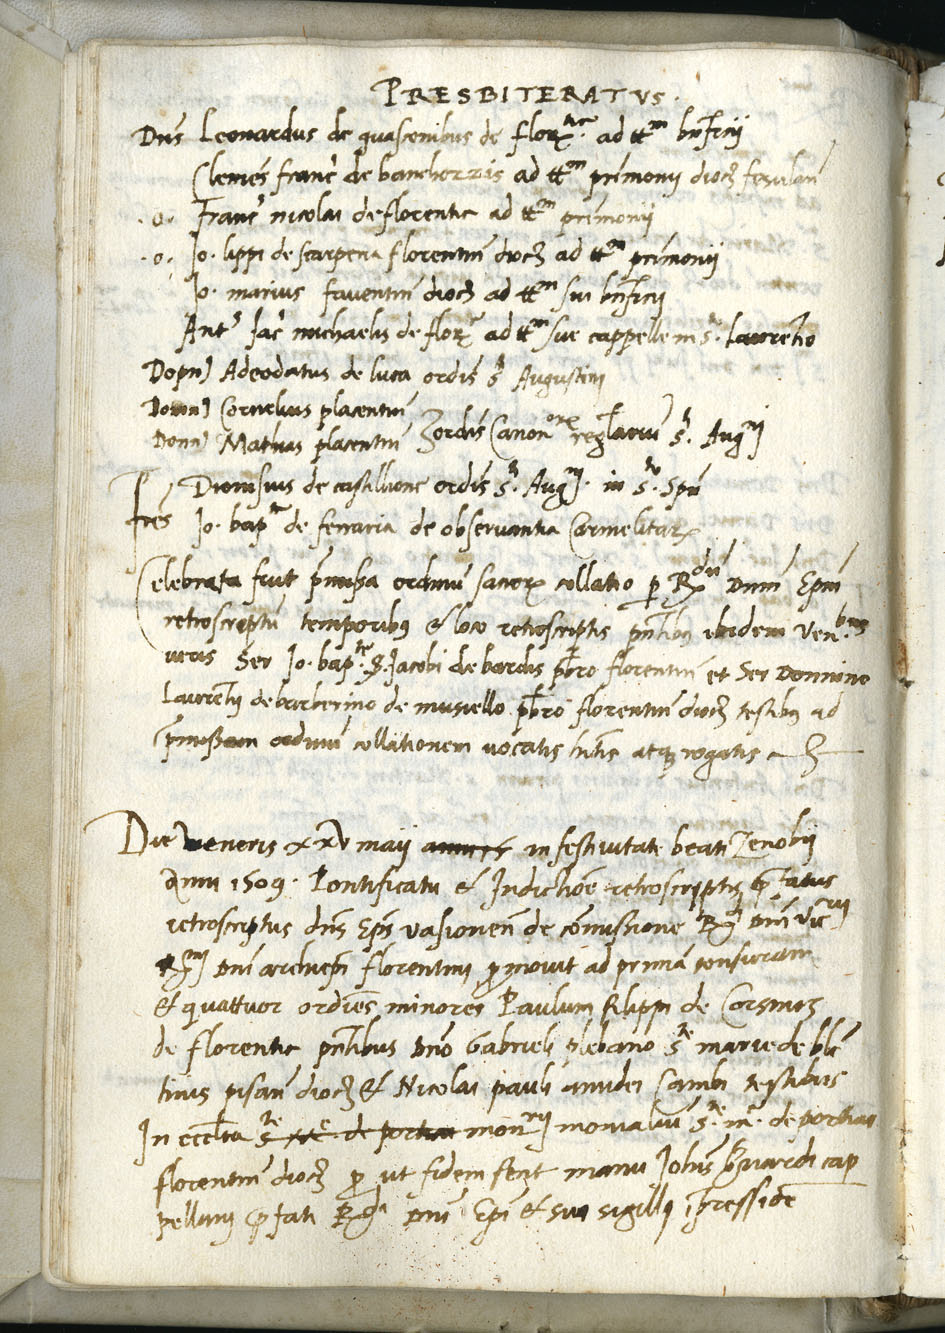 PRESBITERATVS.
Dns Leonardus de guasconibus de flor. ad ttm bnficij
Clemes franc de ad ttm primonij dioc fesulan
.o. Franc nicolai de florentie ad ttm primonij
.o. Jo. lippi de scarperia florentin dioc ad ttm primonij
Jo. marius faventin dioc ad ttm sui bnficij
Ant Jac michaelis de flor ad ttm sue cappelle in s. laurentio
Dopn Adeodatus de luca ordis s Augustini
Donn Cornelius placentin
Donn Mathias placentin ordis Canon reglariu s. Aug
Dionisius de castillione ordis s. Aug. in s. Spu
fres Jo. bapta de ferraria de observantia Carmelitar
Celebrata fuit pmissa ordinu sacror collatio p R Dnm Epm
retroscriptu temporibus & loco retroscriptis pntibus ibidem Ven.
viris Ser Jo. bapt. S. Jacobi de bardis pbro florentin et Ser Dominico
Laurentij de barberino de mucello pbro florentin dioc testibus ad
pmissam ordinu collationem vocatis atq rogatis
Die veneris xxv maij in festivitate beati Zenobij
Anni 1509. Pontificatu & Indictioe retroscriptis pfatus
retroscriptus dns Eps vasionen de comissione R Dni vic
R Dni archiepi florentini pmovit ad prima tonsuram
& quattuor ordies minores Paulum filippi de
de florentie pntibus dno Gabrieli plebano s marie de
tinis pisan dioc & Nicolai pauli Cambi testibus
In eccl[es]ia s de mon monialiu s. m. de
florentin dioc p ut fidem fecit manu Johis cap
pellani pfati R Dni Epi & sui sigilli